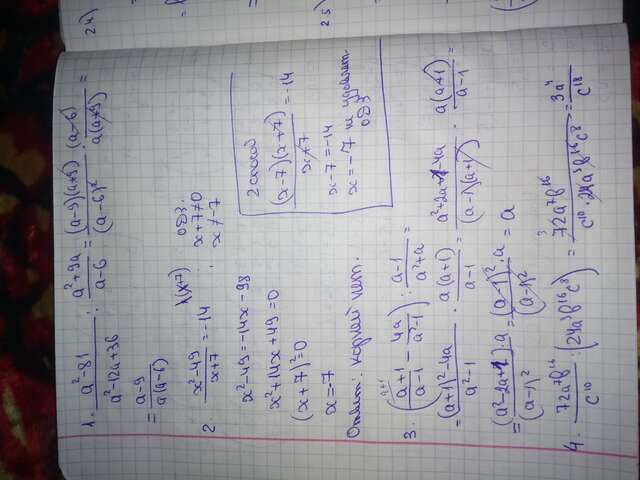 1. (a²-81)/(a²-12a+36) : (a²+9a)/(a-6) = ((a-9)(a+9))/((a-6)²) · (a-6)/(a(a+9)) =
= (a-9)/(a(a-6))
2. (x²-49)/(x+7) = -14 |·(x+7) ОДЗ.
x+7≠0
x≠-7
x²-49=-14x-98
x²+14x+49=0
(x+7)²=0
x=-7
Ответ: корней нет.
2 способ
((x-7)(x+7))/(x+7) = -14
x-7=-14
x=-7 не удовлет.
ОДЗ
3. ((a+1)/(a-1) - 4a/(a²-1)) : (a-1)/(a²+a) =
= ((a+1)²-4a)/(a²-1) · (a(a+1))/(a-1) = (a²+2a+1-4a)/((a-1)(a+1)) · (a(a+1))/(a-1) =
= ((a²-2a+1)·a)/((a-1)²) = ((a-1)²·a)/((a-1)²) = a
4. (72a⁷b¹⁶)/c¹⁰ : (24a³b¹⁶c⁸) = (72a⁷b¹⁶)/(c¹⁰·24a³b¹⁶c⁸) = (3a⁴)/c¹⁸
2.4)
2.5)